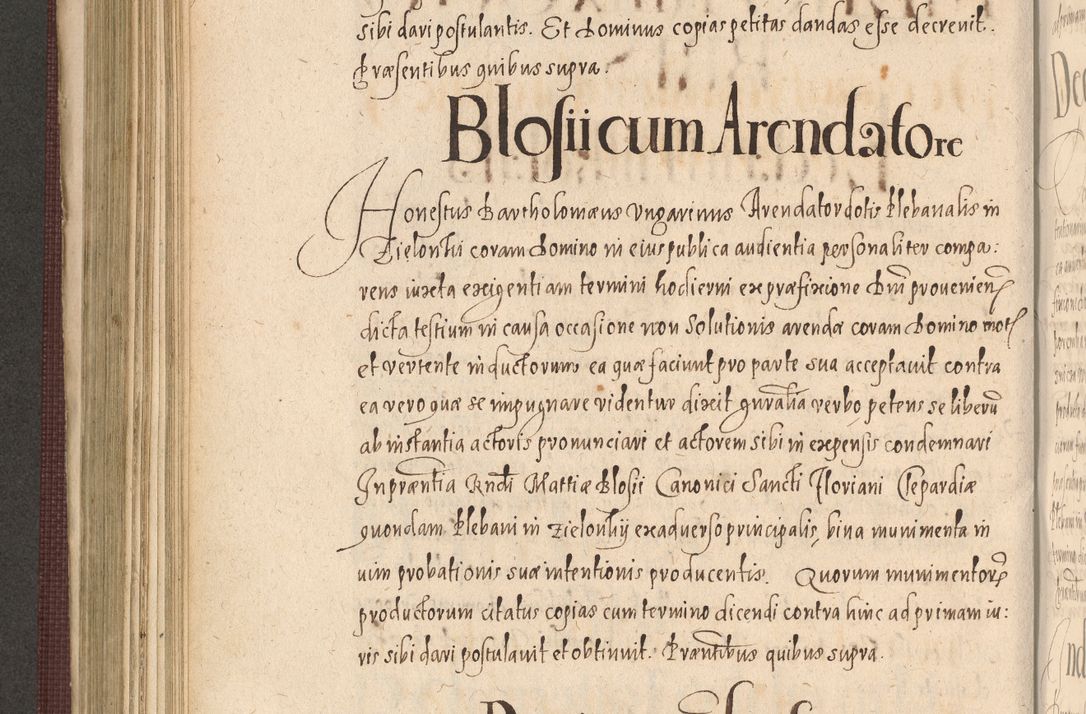 sibi dari postulantis. Et Dominus copias petitas dandas esse decrevit.
Præsentibus quibus supra.
Blosii cum Arendatore
Honestus Bartholomæus Ungarinus Arendator dotis Plebanalis in
Zielonki coram Domino in eius publica audientia personaliter compa:
rens iuxta exigentiam termini hodierni ex præfixione Dni provenien
dicta testium in causa occasione non solutionis arendæ coram Domino mot
et vertente inductorum ea quæ faciunt pro parte sua acceptavit contra
ea vero quæ se impugnare videntur dixit gnralia verbo petens se liberū
ab instantia actoris pronunciari et actorem sibi in expensis condemnari
In præntia Rndi Mattiæ Blosii Canonici Sancti Floriani Clepardiæ
quondam Plebani in Zielonkij ex adverso principalis, bina munimenta in
vim probationis suæ intentionis producentis. Quorum munimentor
productorum citatus copias cum termino dicendi contra hinc ad primam iu:
ris sibi dari postulavit et obtinuit. Præntibus quibus supra.